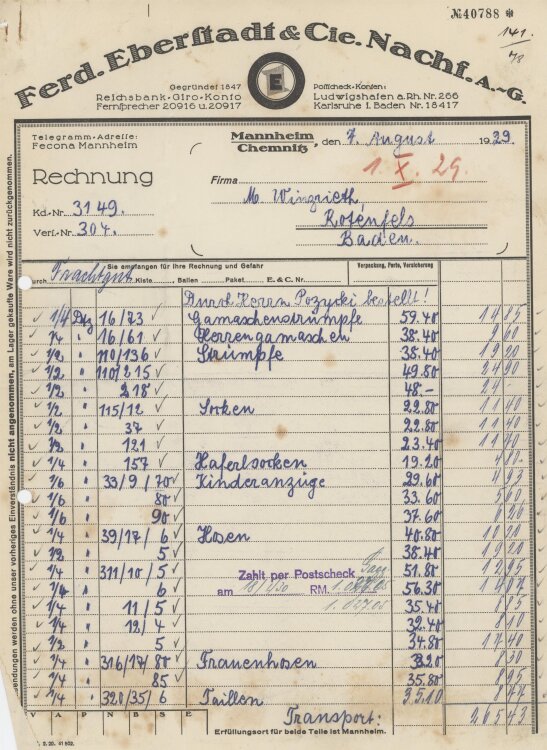 № 40788 *
Ferd. Eberstadt & Cie. Nachf. A.-G.
Gegründet 1847
Reichsbank-Giro-Konto
Fernsprecher 20916 u. 20917
E
Postscheck-Konten:
Ludwigshafen a. Rh. Nr. 266
Karlsruhe i. Baden Nr. 18417
Telegramm-Adresse:
Fecona Mannheim
Mannheim
Chemnitz, den 7. August 1929.
1. X. 29.
Rechnung
Firma M. Winzrieth,
Rotenfels
Baden.
Kd.-Nr. 3149.
Verf.-Nr. 304.
Sie empfangen für Ihre Rechnung und Gefahr
Verpackung, Porto, Versicherung
durch Frachtgut Kiste Ballen Paket E. & C. Nr.
Durch Herrn Pozycki bestellt!
1/4 Dtz 16/23 Gamaschenstrümpfe 59.40 14 85
1/4 " 16/61 Herrengamaschen 38.40 9 60
1/2 " 110/136 Strümpfe 38.40 19 20
1/2 " 110/215 49.80 24 90
1/2 " 218 48.- 24 -
1/2 " 115/12 Socken 22.80 11 40
1/2 " 37 22.80 11 40
1/2 " 121 23.40 11 70
1/4 " 157 Haferlsocken 19.20 4 80
1/6 " 33/9/70 Kinderanzüge 29.60 4 93
1/6 " 80 33.60 5 60
1/6 " 90 37.60 6 26
1/4 " 39/17/6 Hosen 40.80 10 20
1/2 " 5 38.40 19 20
1/4 " 311/10/5 51.80 12 95
1/4 " 6 56.30 14 07
Zahlt per Postscheck
am RM.
1/4 " 11/5 35.40 8 85
1/4 " 12/4 32.40 8 10
1/2 " 5 34.80 17 40
1/4 " 316/17/80 Frauenhosen 33.20 8 30
1/4 " 85 35.80 8 95
1/4 " 320/35/6 Taillen
V A P N B S E
Transport: 265 43
Erfüllungsort für beide Teile ist Mannheim.
sendungen werden ohne unser vorheriges Einverständnis nicht angenommen, am Lager gekaufte Ware wird nicht zurückgenommen.